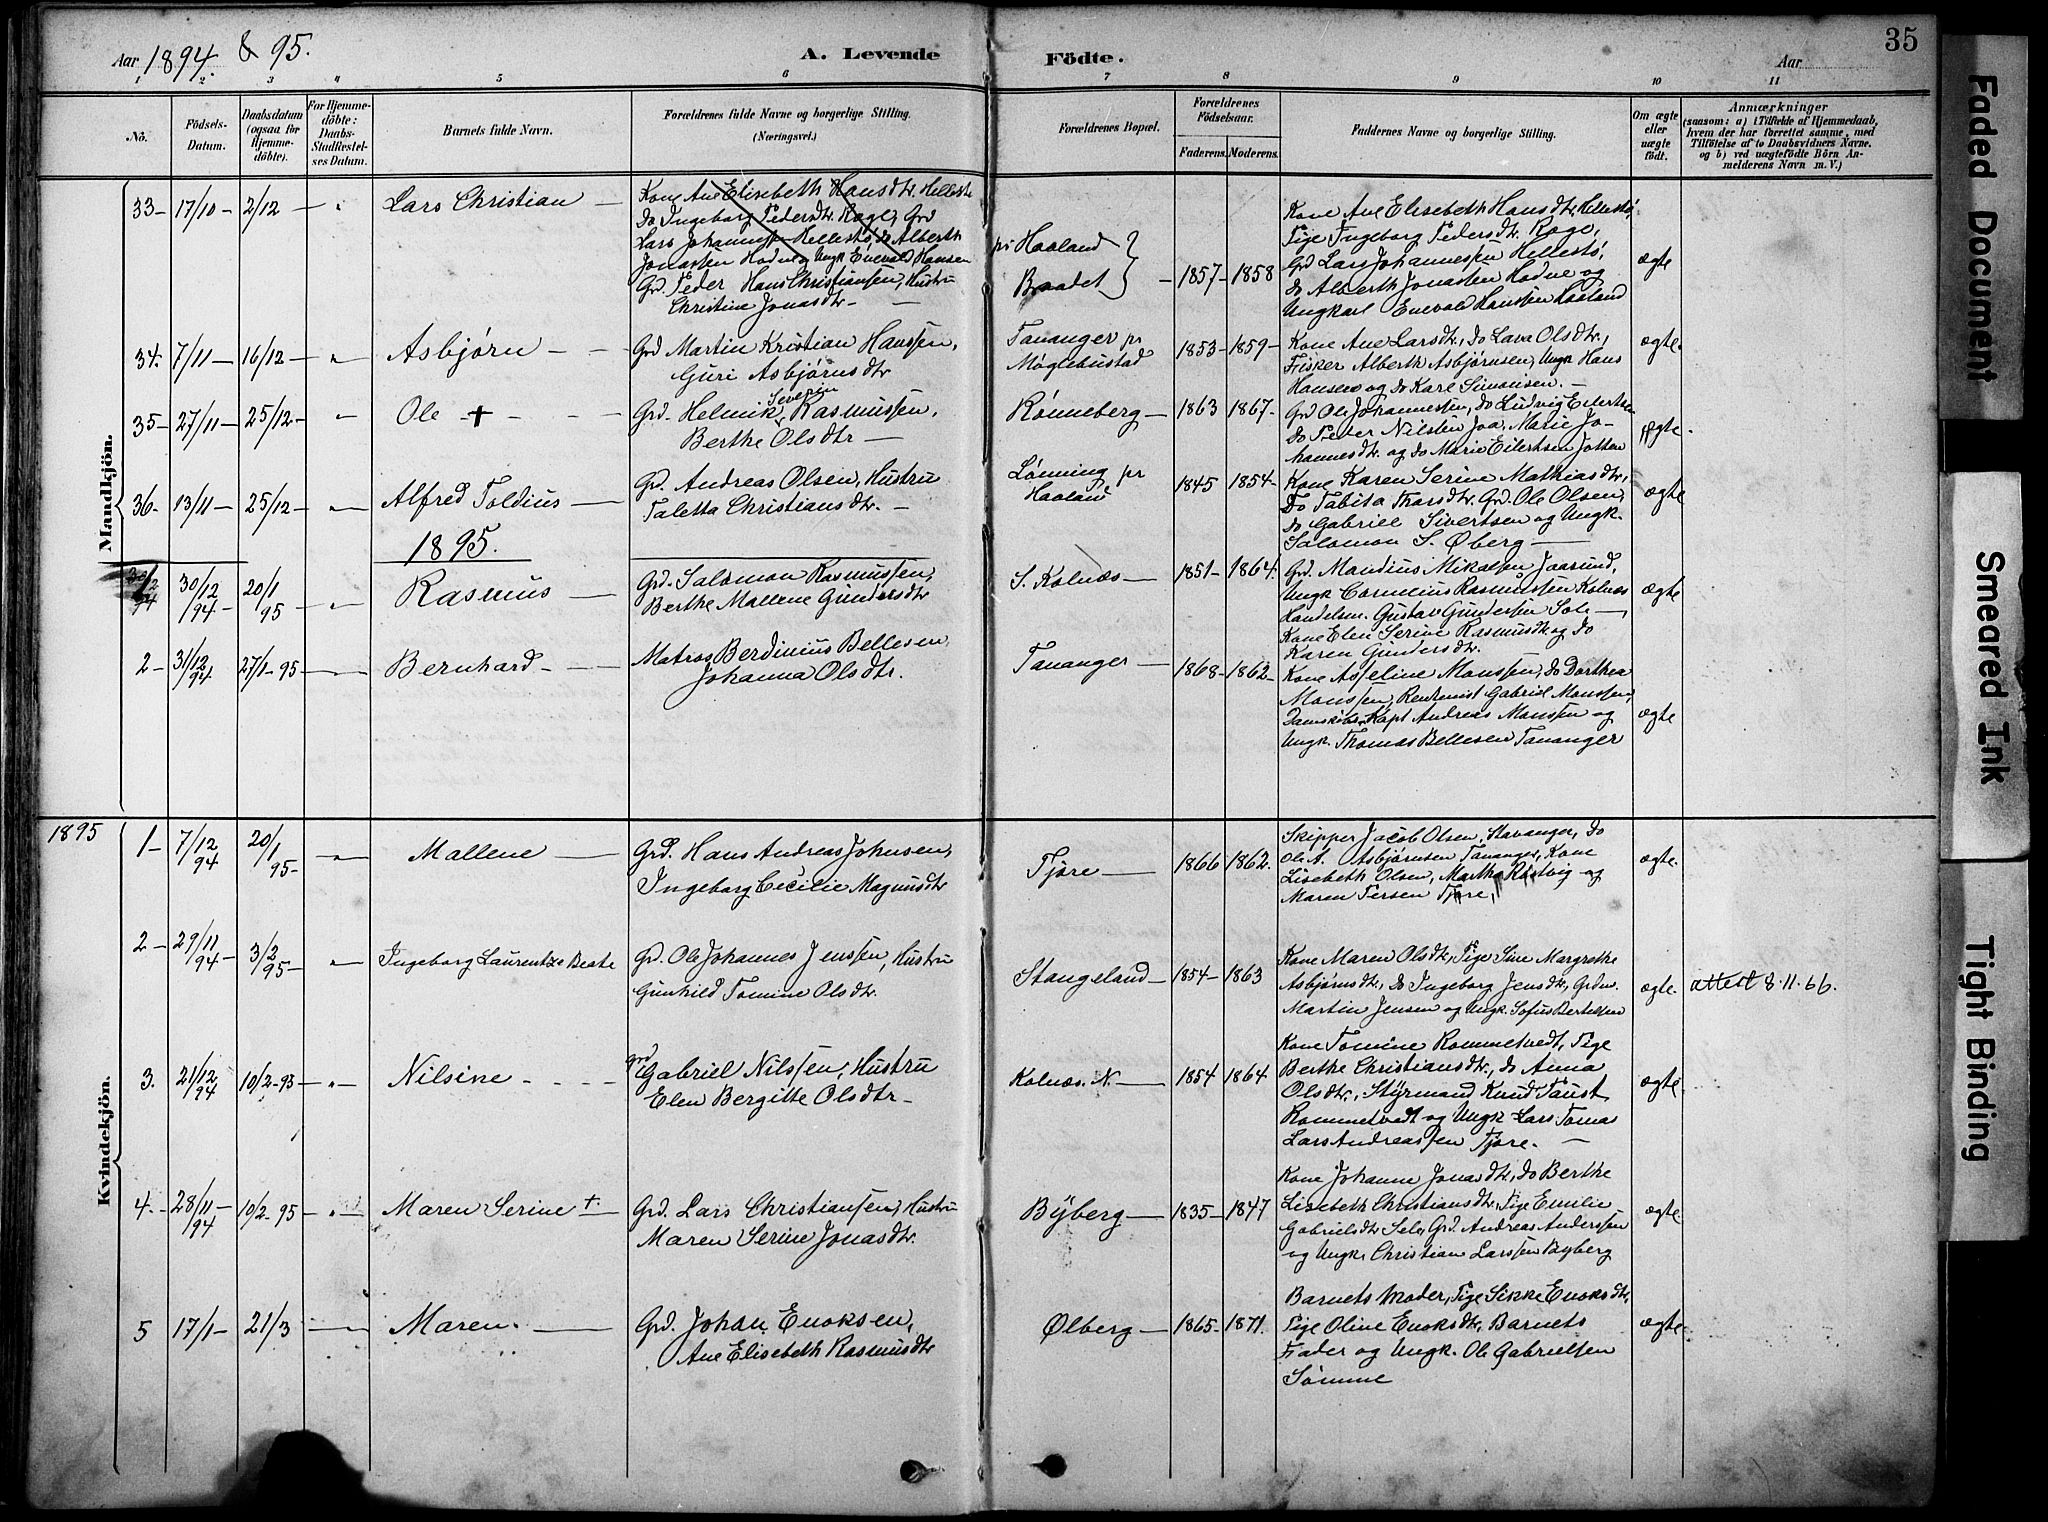 Aar 1894. & 95.
A. Levende
Födte.
Aar
35
1
2
3
"
5
6
7
8
9
10
11
No.
Födsels-
Datum.
Daabsdatum
(ogsaa for
Hjemme-
döbte).
For Hjemme-
döbte:
Daabs-
Stadfæstel-
ses Datum.
Barnets fulde Navn.
Forældrenes fulde Navne og borgerlige Stilling.
(Næringsvei.)
Forældrenes Bopæl.
Forældrenes
Födselsaar.
Faderens.
Moderens.
Faddernes Navne og borgerlige Stilling.
Om ægte
eller
uægte
födt.
Anmærkninger
(saasom: a) i Tilfælde af Hjemmedaab,
hvem der har forrettet samme, med
Tilföielse af to Daabsvidners Navne.
og b) ved uægtefödte Börn An-
melderens Navn m. V.)
Mandkjön.
33- 17/10- 2/12 - " Lars Christian —
Kone Ane Elisebeth Hansdtr. Hellestø
Do Ingeborg Pedersdtr. Roge, Grd
Lars Johannessen Hellestø, do Alberth
Jonassen Hodne og Ungk Enevald Hansen
Grd Peder Hans Christiansen, Hustru
Christine Jonasdtr. —
pr Haaland
Braadet
- 1857- 1858
Kone Ane Elisebeth Hansdtr. Hellestø,
Pige Ingeborg Pedersdtr. Roge,
Grd Lars Johannessen Hellestø,
do Alberth Jonassen Hodne og
Ungkarl Enevald Hanssen Haaland
ægte
34. 7/11- 16/12 - " Asbjørn - -
Grd Martin Kristian Hansen,
Guri Asbjørnsdtr
Tananger pr
Møglebustad
1853- 1859-
Kone Ane Larsdtr., do Lava Olsdtr.,
Fisker Alberth Asbjørnsen, Ungk Hans
Hansen og do Karl Simonsen. —
ægte.
35- 27/11- 25/12- " Ole - + - - -
Grd. Helmik Severin Rasmussen,
Berthe Olsdtr —
Rønneberg —
1863 1867-
Grd Ole Johannessen, do Ludvig Eilertsen
do Peder Nilsen Joa, Marie Jo-
hannesdtr. og do Marie Eilertsen Jotten
ægte.
36- 13/11- 25/12- " Alfred Toldius —
Grd. Andreas Olsen, Hustru
Taletta Christiansdtr. —
Lønning pr
Haaland
1845 1854-
Kone Karen Serine Mathiasdtr,
Do Tabita Tharsdtr. Grd. Ole Olsen,
do Gabriel Sivertsen og Ungk.
Salomon S. Øberg —
ægte
1895.
30/12 94 30/12 94- 20/1 95 - " Rasmus —
Grd. Salomon Rasmussen,
Berthe Mallene Gundersdtr
S. Kolnæs —
1851- 1864.
Grd. Mandius Mikalsen Jaasund,
Ungk Cornelius Rasmussen Kolnæs
Handelsm. Gustav Gundersen Sole —,
Kone Elen Serine Rasmusdtr. og do
Karen Gundersdtr.
ægte
2- 31/12 94 27/1-95 — Bernhard —
Matros Berdinius Bellesen,
Johanna Olsdtr.
Tananger —
1868- 1862-
Kone Asseline Monssen, do Dorthea
Monssen, Rentenist Gabriel Monssen,
Damskibs. Kapt Andreas Monssen og
Ungk. Thomas Bellesen Tananger
ægte
1895
Kvindekjön.
1- 7/12 94 20/1 95- " Mallene —
Grd. Hans Andreas Johnsen,
Ingeborg Cecilie Magnusdtr
Tjøre —
1866 1862.
Skipper Jacob Olsen, Stavanger, do
Ole A. Asbjørnsen Tananger, Kone
Lisebeth Olsen, Martha Røstvig og
Maren Persen Tjøre,
ægte.
2- 29/11 94- 3/2 95- " Ingeborg Laurentze Beate
Grd. Ole Johannes Jenssen, Hustru
Gunhild Tomine Olsdtr.
Stangeland —
1854- 1863
Kone Maren Olsdtr, Pige Sine Margrethe
Asbjørnsdtr, do Ingeborg Jensdtr, Grdm.
Martin Jensen og Ungk. Sofus Bertelsen
ægte.
attest 8.11.66.
3. 21/12 94 10/2-95 - " Nilsine - - - -
grd Gabriel Nilssen, Hustru
Elen Bergitte Olsdtr —
Kolnæs. N. —
1854 1864
Kone Tomine Rommetvedt, Pige
Berthe Christiansdtr., do Anna
Olsdtr., Styrmand Knud Faust
Rommetvedt og Ungk Lars Tomas
Lars Andreassen Tjøre. —
ægte.
4- 28/11 94 10/2-95 - " Maren Serine +.
Grd. Lars Christiansen, Hustru
Maren Serine Jonasdtr.
Byberg —
1835- 1847
Kone Johanne Jonasdtr, do Berthe
Lisebeth Christiansdtr, Pige Emilie
Gabrielsdtr Sele, Grd. Andreas Anderssen
og Ungk. Christian Larssen Byberg
ægte.
5 17/1- 21/3 — Maren. —
Grd. Johan Enoksen,
Ane Elisebeth Rasmusdtr
Ølberg —
1865- 1871.
Barnets Moder, Pige Sikke Enoksdtr,
Pige Oline Enoksdtr, Barnets
Fader og Ungk. Ole Gabrielsen
Sømme
ægte.
Faded Document
Smeared Ink
Tight Binding